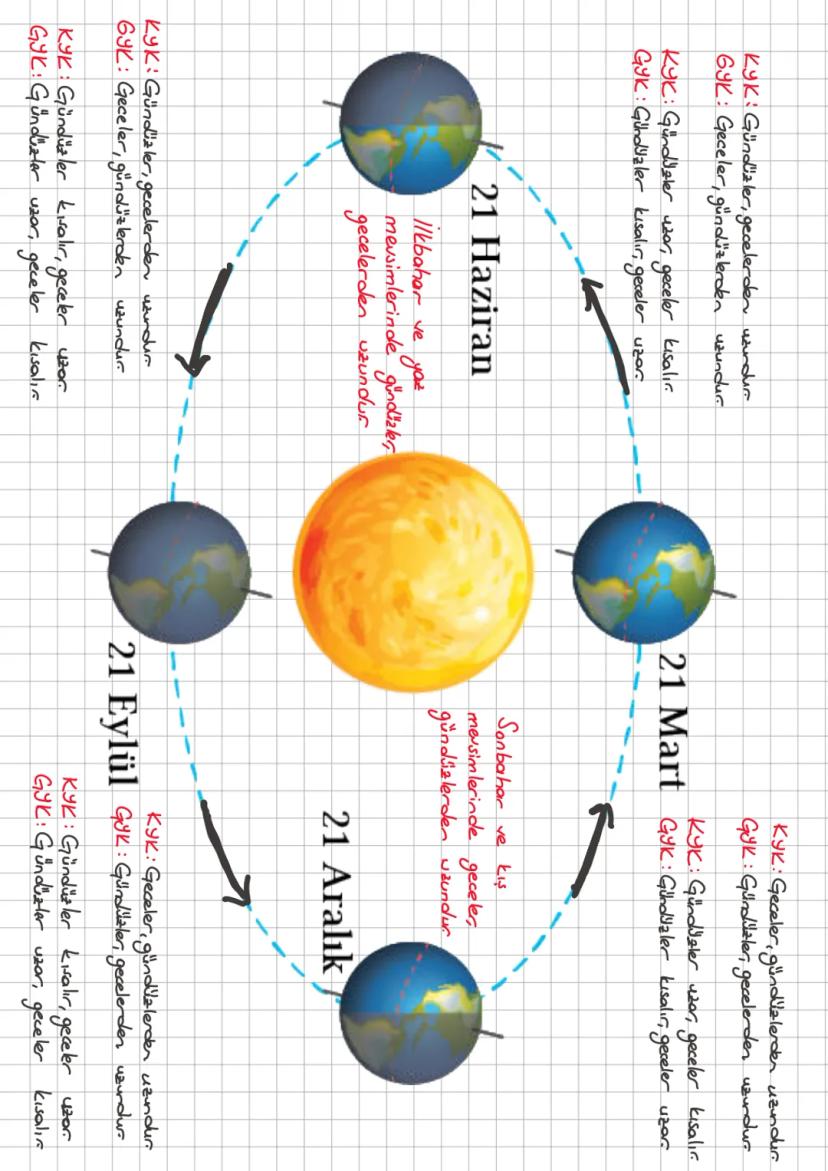 KYK: Gündüzler, gecelerden uzundur
GYK: Geceler, gündüzlerden uzundur
KYK: Gündüzler uzar, geceler kısalır
GYK: Gündüzler kısalır, geceler uzar
21 Mart
KYK: Geceler, gündüzlerden uzundur
GYK: Gündüzler, gecelerden uzundur
KYK: Gündüzler uzar, geceler kısalır
GYK: Gündüzler kısalır, geceler uzar
21 Haziran
İlkbahar ve yaz
mevsimlerinde gündüzler,
gecelerden uzundur
Sonbahar ve kış
mevsimlerinde geceler,
gündüzlerden uzundur
21 Aralık
KYK: Gündüzler, gecelerden uzundur
GYK: Geceler, gündüzlerden uzundur
KYK: Gündüzler kısalır, geceler uzar
GYK: Gündüzler uzar, geceler kısalır
21 Eylül
KYK: Geceler, gündüzlerden uzundur
GYK: Gündüzler, gecelerden uzundur
KYK: Gündüzler kısalır, geceler uzar
GYK: Gündüzler uzar, geceler kısalır